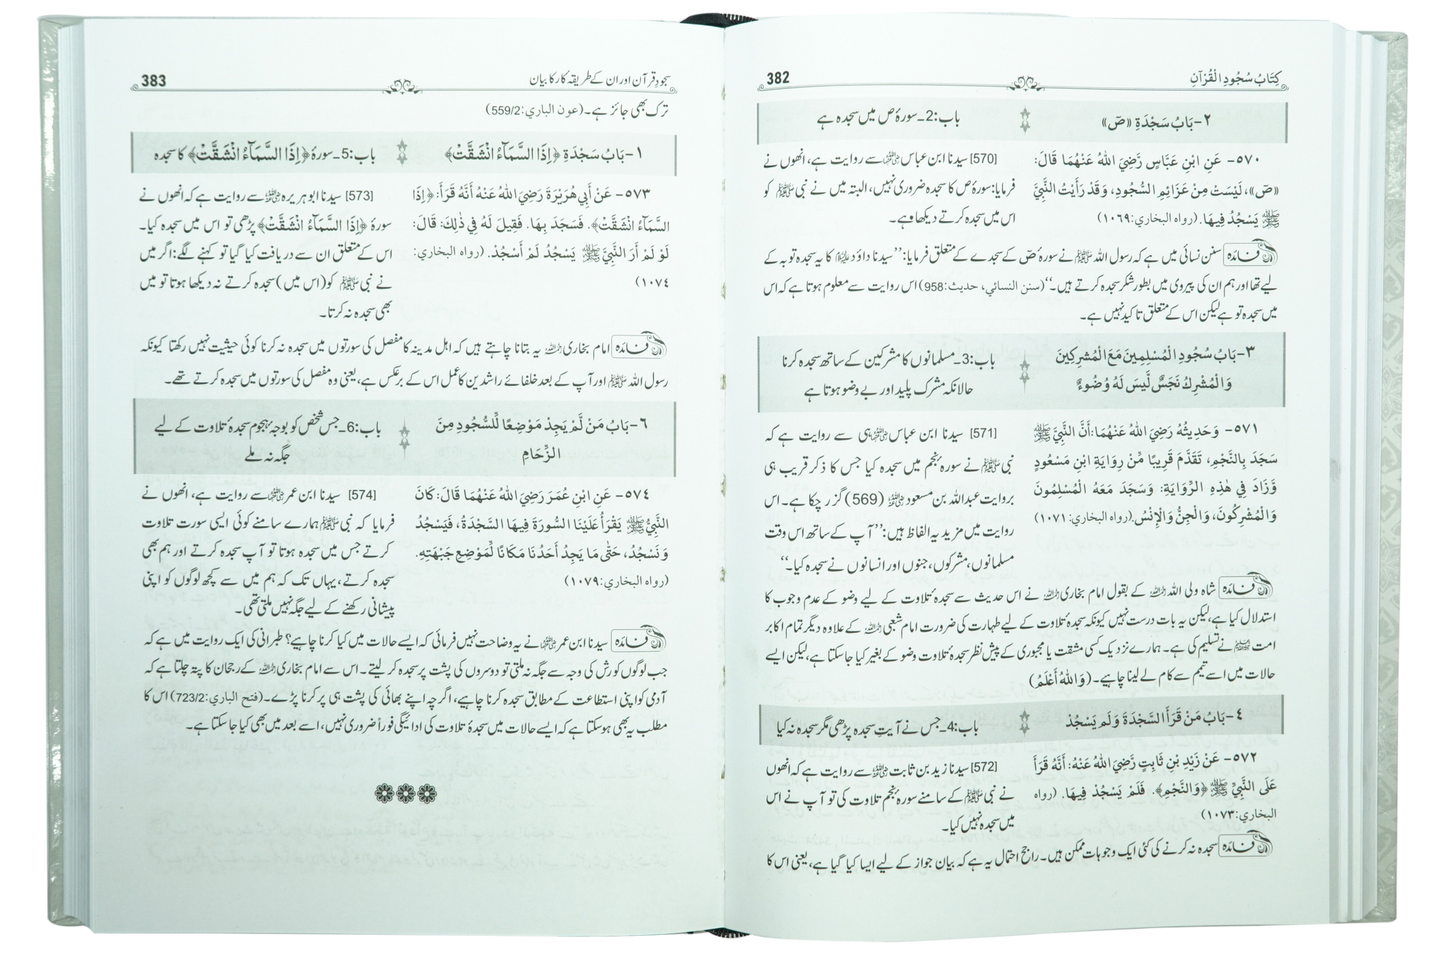 382
كِتَابُ سُجُودِ الْقُرْآنِ
٢- بَابُ سَجْدَةِ «صٓ»
باب:2۔ سورۂ ص میں سجدہ ہے
٥٧٠- عَنِ ابْنِ عَبَّاسٍ رَضِيَ اللهُ عَنْهُمَا قَالَ:
«صٓ»، لَيْسَتْ مِنْ عَزَائِمِ السُّجُودِ، وَقَدْ رَأَيْتُ النَّبِيَّ
ﷺ يَسْجُدُ فِيهَا. (رواه البخاري: ١٠٦٩)
[570] سیدنا ابن عباس رضی اللہ عنہ سے روایت ہے، انھوں نے
فرمایا: سورۂ ص کا سجدہ ضروری نہیں، البتہ میں نے نبی ﷺ کو
اس میں سجدہ کرتے دیکھا ہے۔
فائدہ سنن نسائی میں ہے کہ رسول اللہ ﷺ نے سورۂ صٓ کے سجدے کے متعلق فرمایا: ’’سیدنا داؤد علیہ السلام کا یہ سجدہ توبہ کے
لیے تھا اور ہم ان کی پیروی میں بطور شکر سجدہ کرتے ہیں۔‘‘ (سنن النسائي، حديث: 958) اس روایت سے معلوم ہوتا ہے کہ اس
میں سجدہ تو ہے لیکن اس کے متعلق تاکید نہیں ہے۔
٣- بَابُ سُجُودِ الْمُسْلِمِينَ مَعَ الْمُشْرِكِينَ
وَالْمُشْرِكُ نَجَسٌ لَّيْسَ لَهُ وُضُوءٌ
باب:3۔ مسلمانوں کا مشرکین کے ساتھ سجدہ کرنا
حالانکہ مشرک پلید اور بے وضو ہوتا ہے
٥٧١- وَحَدِيثُهُ رَضِيَ اللهُ عَنْهُمَا: أَنَّ النَّبِيَّ ﷺ
سَجَدَ بِالنَّجْمِ، تَقَدَّمَ قَرِيبًا مِّنْ رِوَايَةِ ابْنِ مَسْعُودٍ
وَزَادَ فِي هٰذِهِ الرِّوَايَةِ: وَسَجَدَ مَعَهُ الْمُسْلِمُونَ
وَالْمُشْرِكُونَ، وَالْجِنُّ وَالْإِنْسُ. (رواه البخاري: ١٠٧١)
[571] سیدنا ابن عباس رضی اللہ عنہ ہی سے روایت ہے کہ
نبی ﷺ نے سورۂ نجم میں سجدہ کیا جس کا ذکر قریب ہی
بروایت عبداللہ بن مسعود رضی اللہ عنہ (569) گزر چکا ہے۔ اس
روایت میں مزید یہ الفاظ ہیں: ’’آپ کے ساتھ اس وقت
مسلمانوں، مشرکوں، جنوں اور انسانوں نے سجدہ کیا۔‘‘
فائدہ شاہ ولی اللہ رحمہ اللہ کے بقول امام بخاری رحمہ اللہ نے اس حدیث سے سجدۂ تلاوت کے لیے وضو کے عدم وجوب کا
استدلال کیا ہے، لیکن یہ بات درست نہیں کیونکہ سجدۂ تلاوت کے لیے طہارت کی ضرورت امام شعبی رحمہ اللہ کے علاوہ دیگر تمام اکابر
امت نے تسلیم کی ہے۔ ہمارے نزدیک کسی مشقت یا مجبوری کے پیش نظر سجدۂ تلاوت وضو کے بغیر کیا جا سکتا ہے، لیکن ایسے
حالات میں اسے تیمم سے کام لے لینا چاہیے۔ (وَاللهُ أَعْلَمُ)
٤- بَابُ مَنْ قَرَأَ السَّجْدَةَ وَلَمْ يَسْجُدْ
باب:4۔ جس نے آیت سجدہ پڑھی مگر سجدہ نہ کیا
٥٧٢- عَنْ زَيْدِ بْنِ ثَابِتٍ رَّضِيَ اللهُ عَنْهُ: أَنَّهُ قَرَأَ
عَلَى النَّبِيِّ ﷺ ﴿وَالنَّجْمِ﴾. فَلَمْ يَسْجُدْ فِيهَا. (رواه
البخاري: ١٠٧٣)
[572] سیدنا زید بن ثابت رضی اللہ عنہ سے روایت ہے کہ انھوں
نے نبی ﷺ کے سامنے سورۂ نجم تلاوت کی تو آپ نے اس
میں سجدہ نہیں کیا۔
فائدہ سجدہ نہ کرنے کی کئی ایک وجوہات ممکن ہیں۔ راجح احتمال یہ ہے کہ بیان جواز کے لیے ایسا کیا گیا ہے، یعنی اس کا
383
سجود قرآن اور ان کے طریقہ کار کا بیان
ترک بھی جائز ہے۔ (عون الباري: 559/2)
١- بَابُ سَجْدَةِ ﴿إِذَا السَّمَاءُ انْشَقَّتْ﴾
باب:5۔ سورۂ ﴿إِذَا السَّمَاءُ انْشَقَّتْ﴾ کا سجدہ
٥٧٣- عَنْ أَبِي هُرَيْرَةَ رَضِيَ اللهُ عَنْهُ أَنَّهُ قَرَأَ: ﴿إِذَا
السَّمَاءُ انْشَقَّتْ﴾. فَسَجَدَ بِهَا. فَقِيلَ لَهُ فِي ذٰلِكَ: قَالَ:
لَوْ لَمْ أَرَ النَّبِيَّ ﷺ يَسْجُدُ لَمْ أَسْجُدْ. (رواه البخاري:
١٠٧٤)
[573] سیدنا ابو ہریرہ رضی اللہ عنہ سے روایت ہے کہ انھوں نے
سورۂ ﴿إِذَا السَّمَاءُ انْشَقَّتْ﴾ پڑھی تو اس میں سجدہ کیا۔
اس کے متعلق ان سے دریافت کیا گیا تو کہنے لگے: اگر میں
نے نبی ﷺ کو (اس میں) سجدہ کرتے نہ دیکھا ہوتا تو میں
بھی سجدہ نہ کرتا۔
فائدہ امام بخاری رحمہ اللہ یہ بتانا چاہتے ہیں کہ اہل مدینہ کا مفصل کی سورتوں میں سجدہ نہ کرنا کوئی حیثیت نہیں رکھتا کیونکہ
رسول اللہ ﷺ اور آپ کے بعد خلفائے راشدین کا عمل اس کے برعکس ہے، یعنی وہ مفصل کی سورتوں میں سجدہ کرتے تھے۔
٦- بَابُ مَنْ لَّمْ يَجِدْ مَوْضِعًا لِّلسُّجُودِ مِنَ
الزِّحَامِ
باب:6۔ جس شخص کو بوجہ ہجوم سجدۂ تلاوت کے لیے
جگہ نہ ملے
٥٧٤- عَنِ ابْنِ عُمَرَ رَضِيَ اللهُ عَنْهُمَا قَالَ: كَانَ
النَّبِيُّ ﷺ يَقْرَأُ عَلَيْنَا السُّورَةَ فِيهَا السَّجْدَةُ، فَيَسْجُدُ
وَنَسْجُدُ، حَتَّى مَا يَجِدُ أَحَدُنَا مَكَانًا لِّمَوْضِعِ جَبْهَتِهِ.
(رواه البخاري: ١٠٧٩)
[574] سیدنا ابن عمر رضی اللہ عنہ سے روایت ہے، انھوں نے
فرمایا کہ نبی ﷺ ہمارے سامنے کوئی ایسی سورت تلاوت
کرتے جس میں سجدہ ہوتا تو آپ سجدہ کرتے اور ہم بھی
سجدہ کرتے، یہاں تک کہ ہم میں سے کچھ لوگوں کو اپنی
پیشانی رکھنے کے لیے جگہ نہیں ملتی تھی۔
فائدہ سیدنا ابن عمر رضی اللہ عنہ نے یہ وضاحت نہیں فرمائی کہ ایسے حالات میں کیا کرنا چاہیے؟ طبرانی کی ایک روایت میں ہے کہ
جب لوگوں کو رش کی وجہ سے جگہ نہ ملتی تو دوسروں کی پشت پر سجدہ کر لیتے۔ اس سے امام بخاری رحمہ اللہ کے رجحان کا پتہ چلتا ہے کہ
آدمی کو اپنی استطاعت کے مطابق سجدہ کرنا چاہیے، اگرچہ اپنے بھائی کی پشت ہی پر کرنا پڑے۔ (فتح الباري: 723/2) اس کا
مطلب یہ بھی ہو سکتا ہے کہ ایسے حالات میں سجدۂ تلاوت کی ادائیگی فوراً ضروری نہیں، اسے بعد میں بھی کیا جا سکتا ہے۔